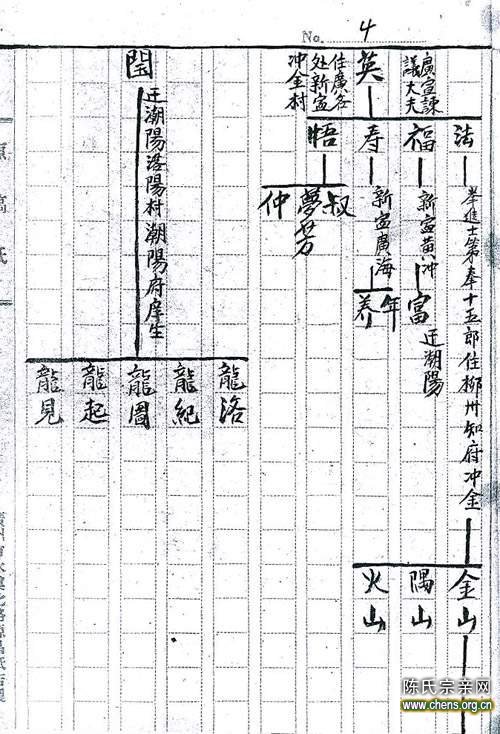 No. 4
廣宣諫
議大夫
英
住廣各
处新宣
冲金村
法
福
寿
悟
举進士第奉十五郎住柳州知府冲金
金山
隅山
火山
新宣黄冲
富
迁潮陽
新宣廣海
年
养
叔
夢男
仲
閏
迁潮陽洛陽村潮陽府庠生
龍洛
龍紀
龍圖
龍起
龍見
陈氏宗亲网
www.chens.org.cn